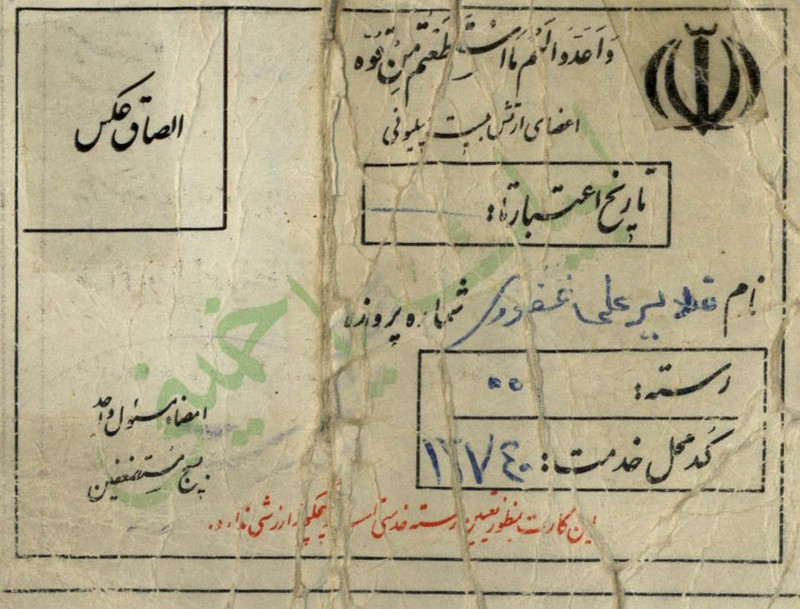 وَاَعِدّوالَهُم مَااسْتَطَعْتُم مِنْ قُوَّه
اعضای ارتش بیست میلیونی
الصاق عکس
تاریخ اعتبار تا:
نام علی غفوری شماره پرونده
رسته: ۰۰
کد محل خدمت:
امضاء مسئول واحد
بسیج مستضعفین
این کارت بمنظور تعیین رسته خدمتی است هیچگونه ارزشی ندارد.
خمینی